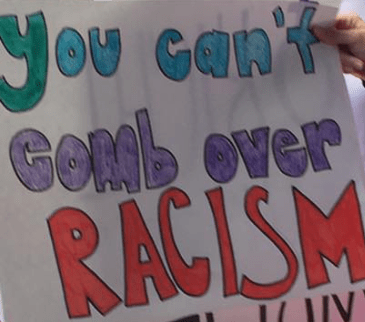 You can't
comb over
RACISM